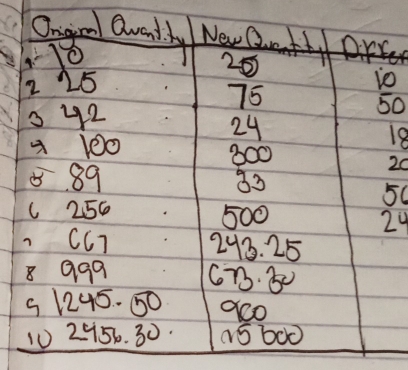 Original Quantity New Quantity Differ
1 10 20 10
2 25 75 50
3 42 24 18
4 100 300 20
5 89 33 56
6 256 500 24
7 667 243.25
8 999 673.30
9 1245.50 960
10 2456.30 15 600